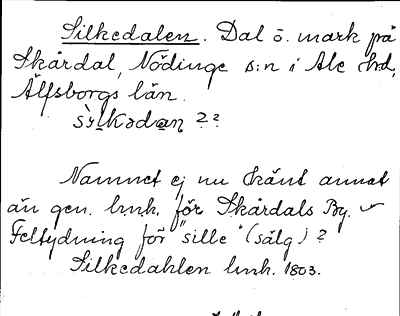 Silkedalen. Dal o. mark på
Skårdal, Nödinge s:n i Ale hd,
Älfsborgs län.
sìlkədan ??
Namnet ej nu känt annat
än gen. lmh. för Skårdals By.
Feltydning för "sille" (sälg)?
Silkedahlen lmh. 1803.